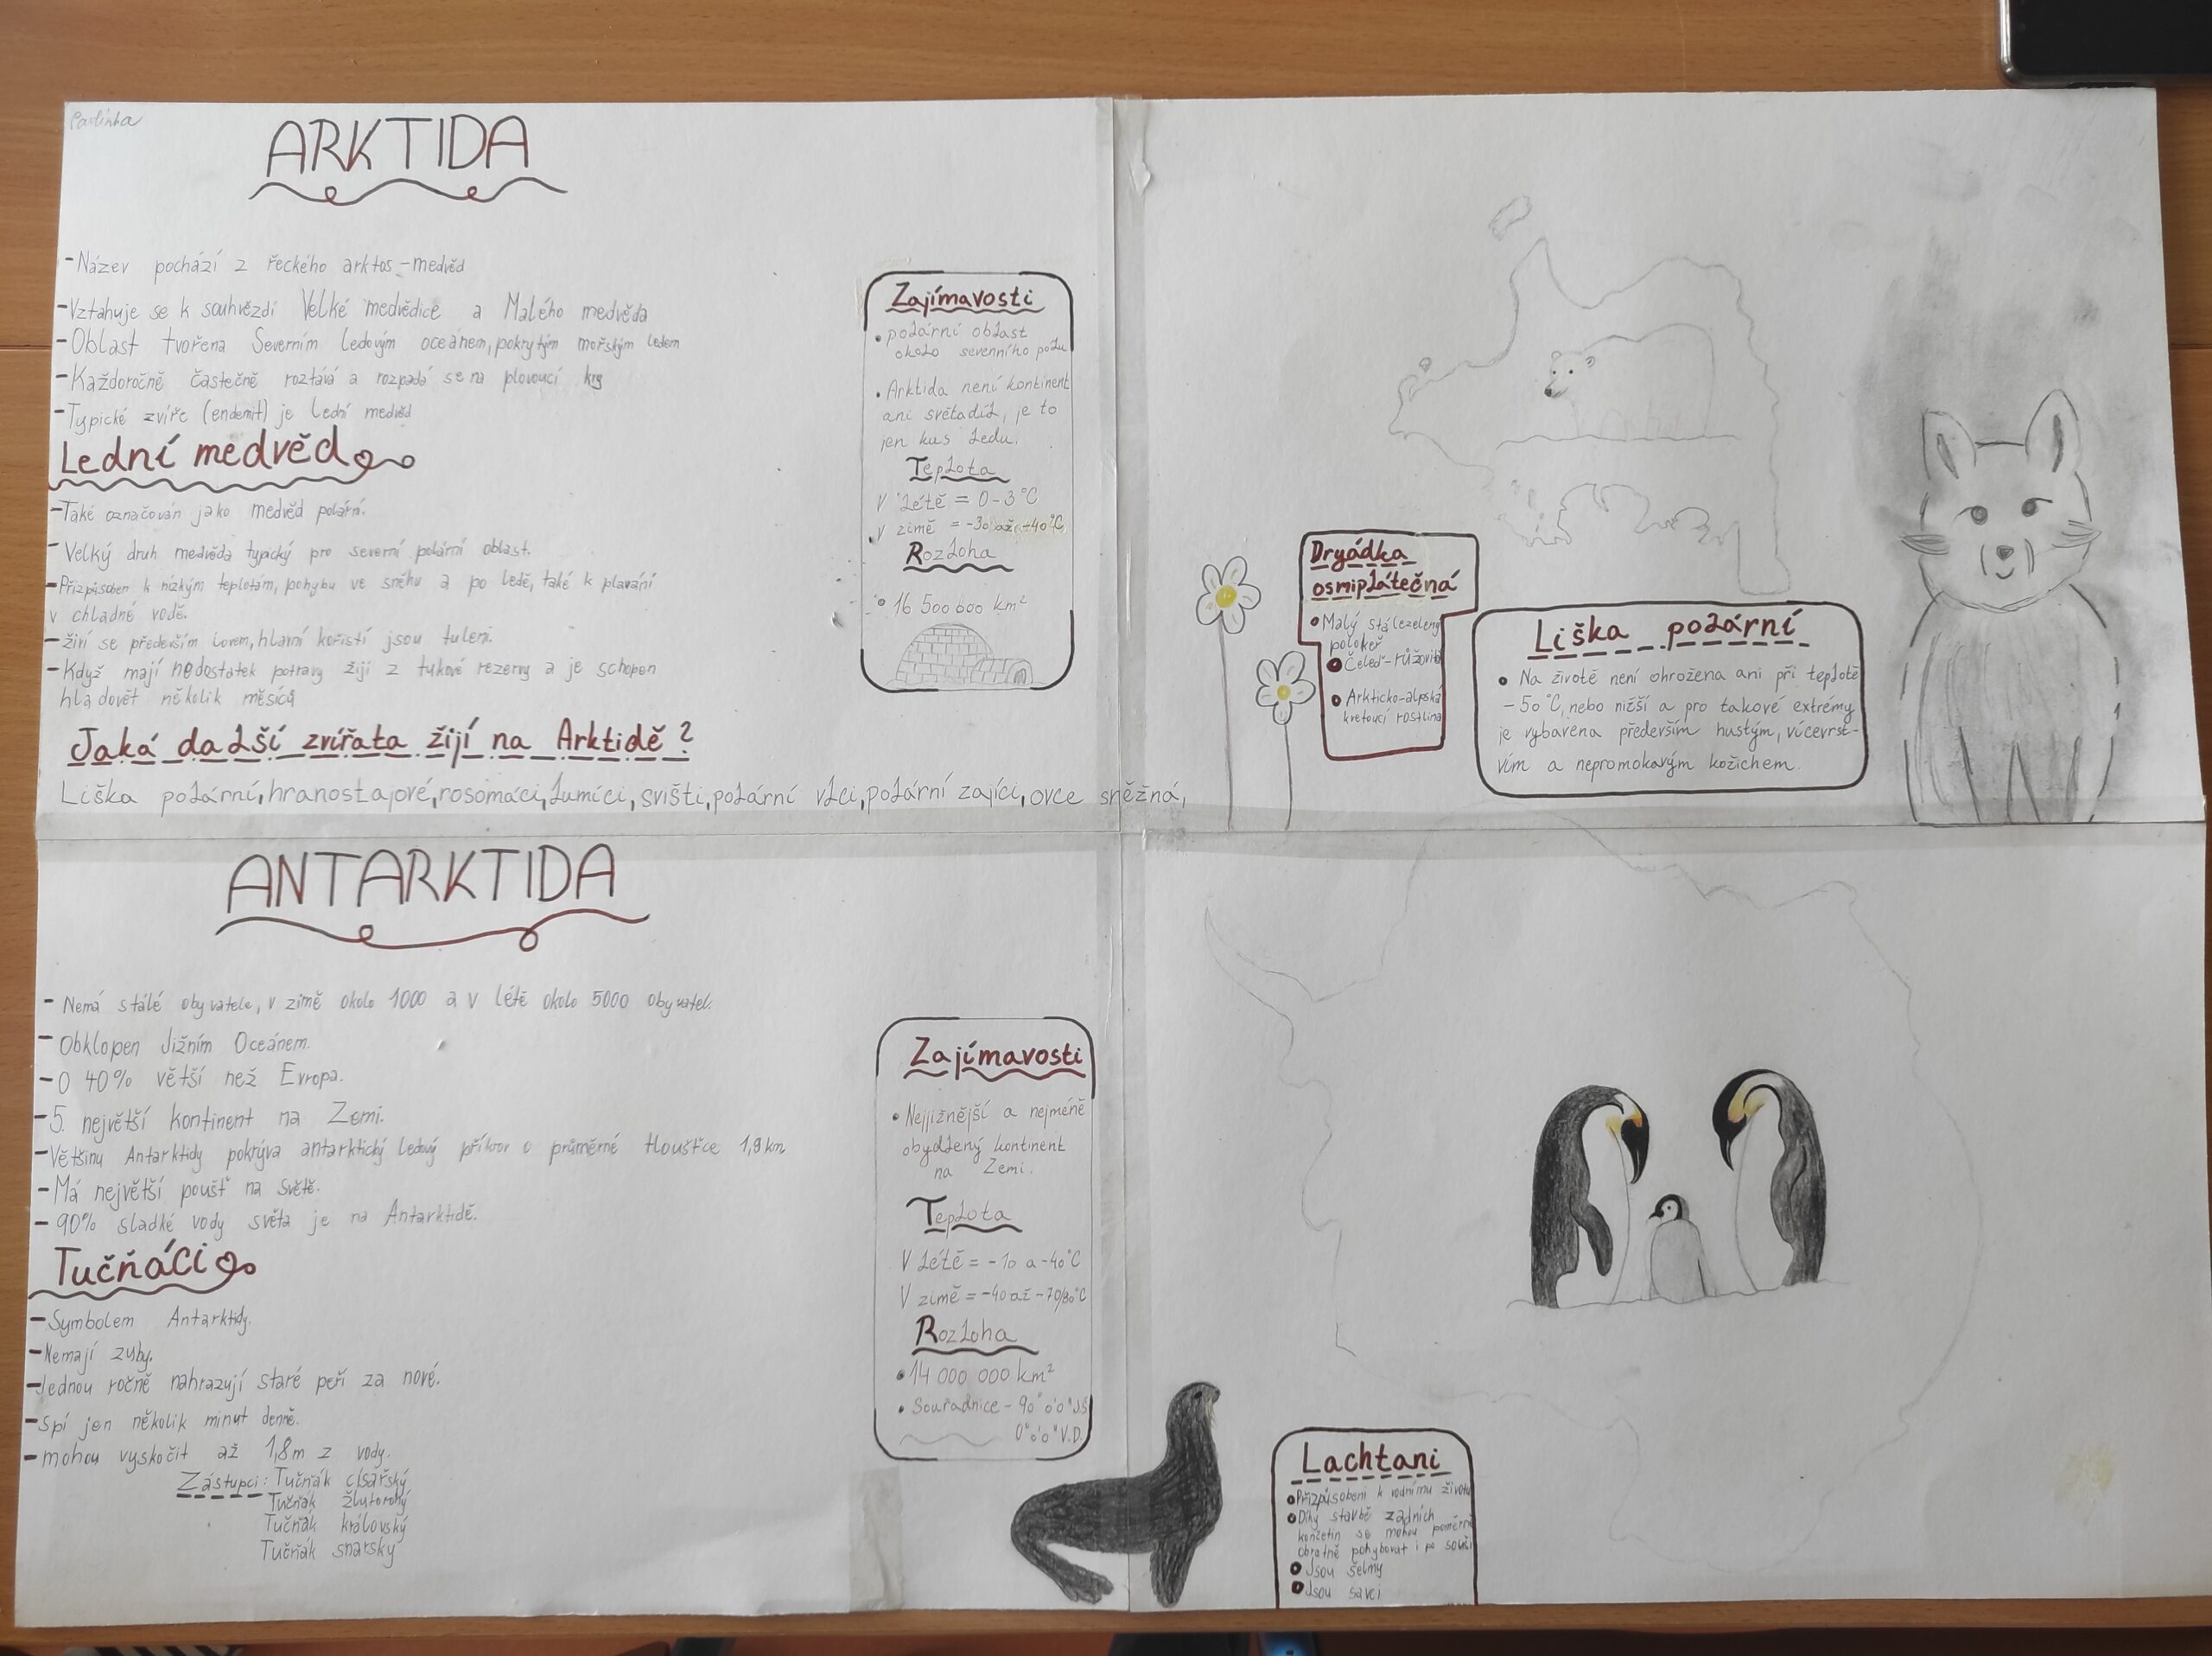 Pavlínka
ARKTIDA
-Název pochází z řeckého arktos-medvěd
-Vztahuje se k souhvězdí Velké medvědice a Malého medvěda
-Oblast tvořena Severním ledovým oceánem, pokrytým mořským ledem
-Každoročně částečně roztává a rozpadá se na plovoucí kry
-Typické zvíře (endemit) je lední medvěd
Lední medvěd
-Také označován jako medvěd polární.
-Velký druh medvěda typický pro severní polární oblast.
-Přizpůsoben k nízkým teplotám, pohybu ve sněhu a po ledě, také k plavání
v chladné vodě.
-živí se především lovem, hlavní kořistí jsou tuleni.
-Když mají nedostatek potravy žijí z tukové rezervy a je schopen
hladovět několik měsíců
Jaká další zvířata žijí na Arktidě?
Liška polární, hranostajové, rosomáci, lumíci, svišti, polární vlci, polární zajíci, ovce sněžná,
Zajímavosti
• polární oblast
okolo severního pólu
• Arktida není kontinent
ani světadíl, je to
jen kus ledu.
Teplota
V létě = 0-3°C
v zimě = -30 až -40°C
Rozloha
• 16 500 000 km²
Dryádka
osmiplátečná
• Malý stálezelený
polokeř
• Čeleď-růžovité
• Arkticko-alpská
kvetoucí rostlina
Liška polární
• Na životě není ohrožena ani při teplotě
-50°C, nebo nižší a pro takové extrémy
je vybavena především hustým, vícevrst-
vím a nepromokavým kožichem.
ANTARKTIDA
- Nemá stálé obyvatele, v zimě okolo 1000 a v létě okolo 5000 obyvatel.
- Obklopen Jižním Oceánem.
-O 40% větší než Evropa.
-5. největší kontinent na Zemi.
-Většinu Antarktidy pokrývá antarktický ledový příkrov o průměrné tloušťce 1,9 km
-Má největší poušť na světě.
- 90% sladké vody světa je na Antarktidě.
Tučňáci
-Symbolem Antarktidy.
-Nemají zuby.
-Jednou ročně nahrazují staré peří za nové.
-Spí jen několik minut denně.
-mohou vyskočit až 1,8m z vody.
Zástupci: Tučňák císařský
Tučňák žlutorohý
Tučňák královský
Tučňák snarský
Zajímavosti
• Nejjižnější a nejméně
obydlený kontinent
na Zemi.
Teplota
V létě = -10 a -40°C
V zimě = -40 až -70/80°C
Rozloha
• 14 000 000 km²
• Souřadnice - 90°0'0"J.Š
0°0'0"V.D.
Lachtani
• Přizpůsobeni k vodnímu životu
• Díky stavbě zadních
končetin se mohou poměrně
obratně pohybovat i po souši
• Jsou šelmy
• Jsou savci